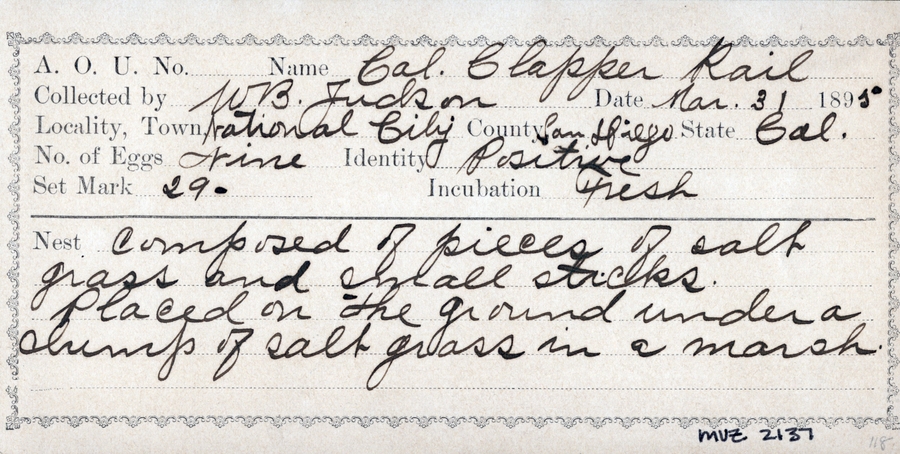 A. O. U. No. Name Cal. Clapper Rail
Collected by W B. Judson Date Mar. 31 1895
Locality, Town, National City County San Diego State Cal.
No. of Eggs Nine Identity Positive
Set Mark 29. Incubation Fresh
Nest composed of pieces of salt
grass and small sticks.
Placed on the ground under a
clump of salt grass in a marsh.
MVZ 2137
118